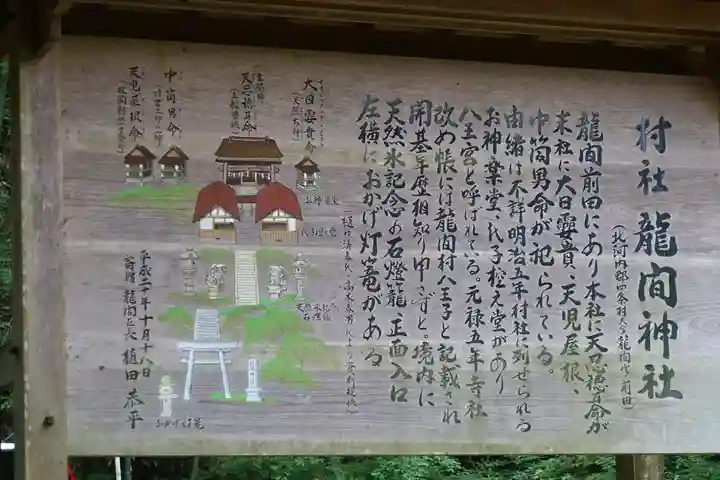 村社 龍間神社
(北河内郡四条村大字龍間字前田)
龍間前田にあり本社に天忍穂耳命が
末社に大日孁貴、天児屋根、
中筒男命が祀られている。
由緒は不詳明治五年村社に列せられる
お神楽堂、氏子控え堂があり
八王宮と呼ばれている。元禄五年寺社
改め帳には龍間村八王子と記載され
開基年歴相知り申さずと。境内に
天然氷記念の石燈籠、正面入口
左横におかげ灯篭がある
大日孁貴命
(天照大神)
天忍穂耳命
中筒男命
天児屋根命
お神楽堂
氏子控え堂
おかげ灯篭
平成二年十月十八日
寄贈 龍間区長 植田恭平